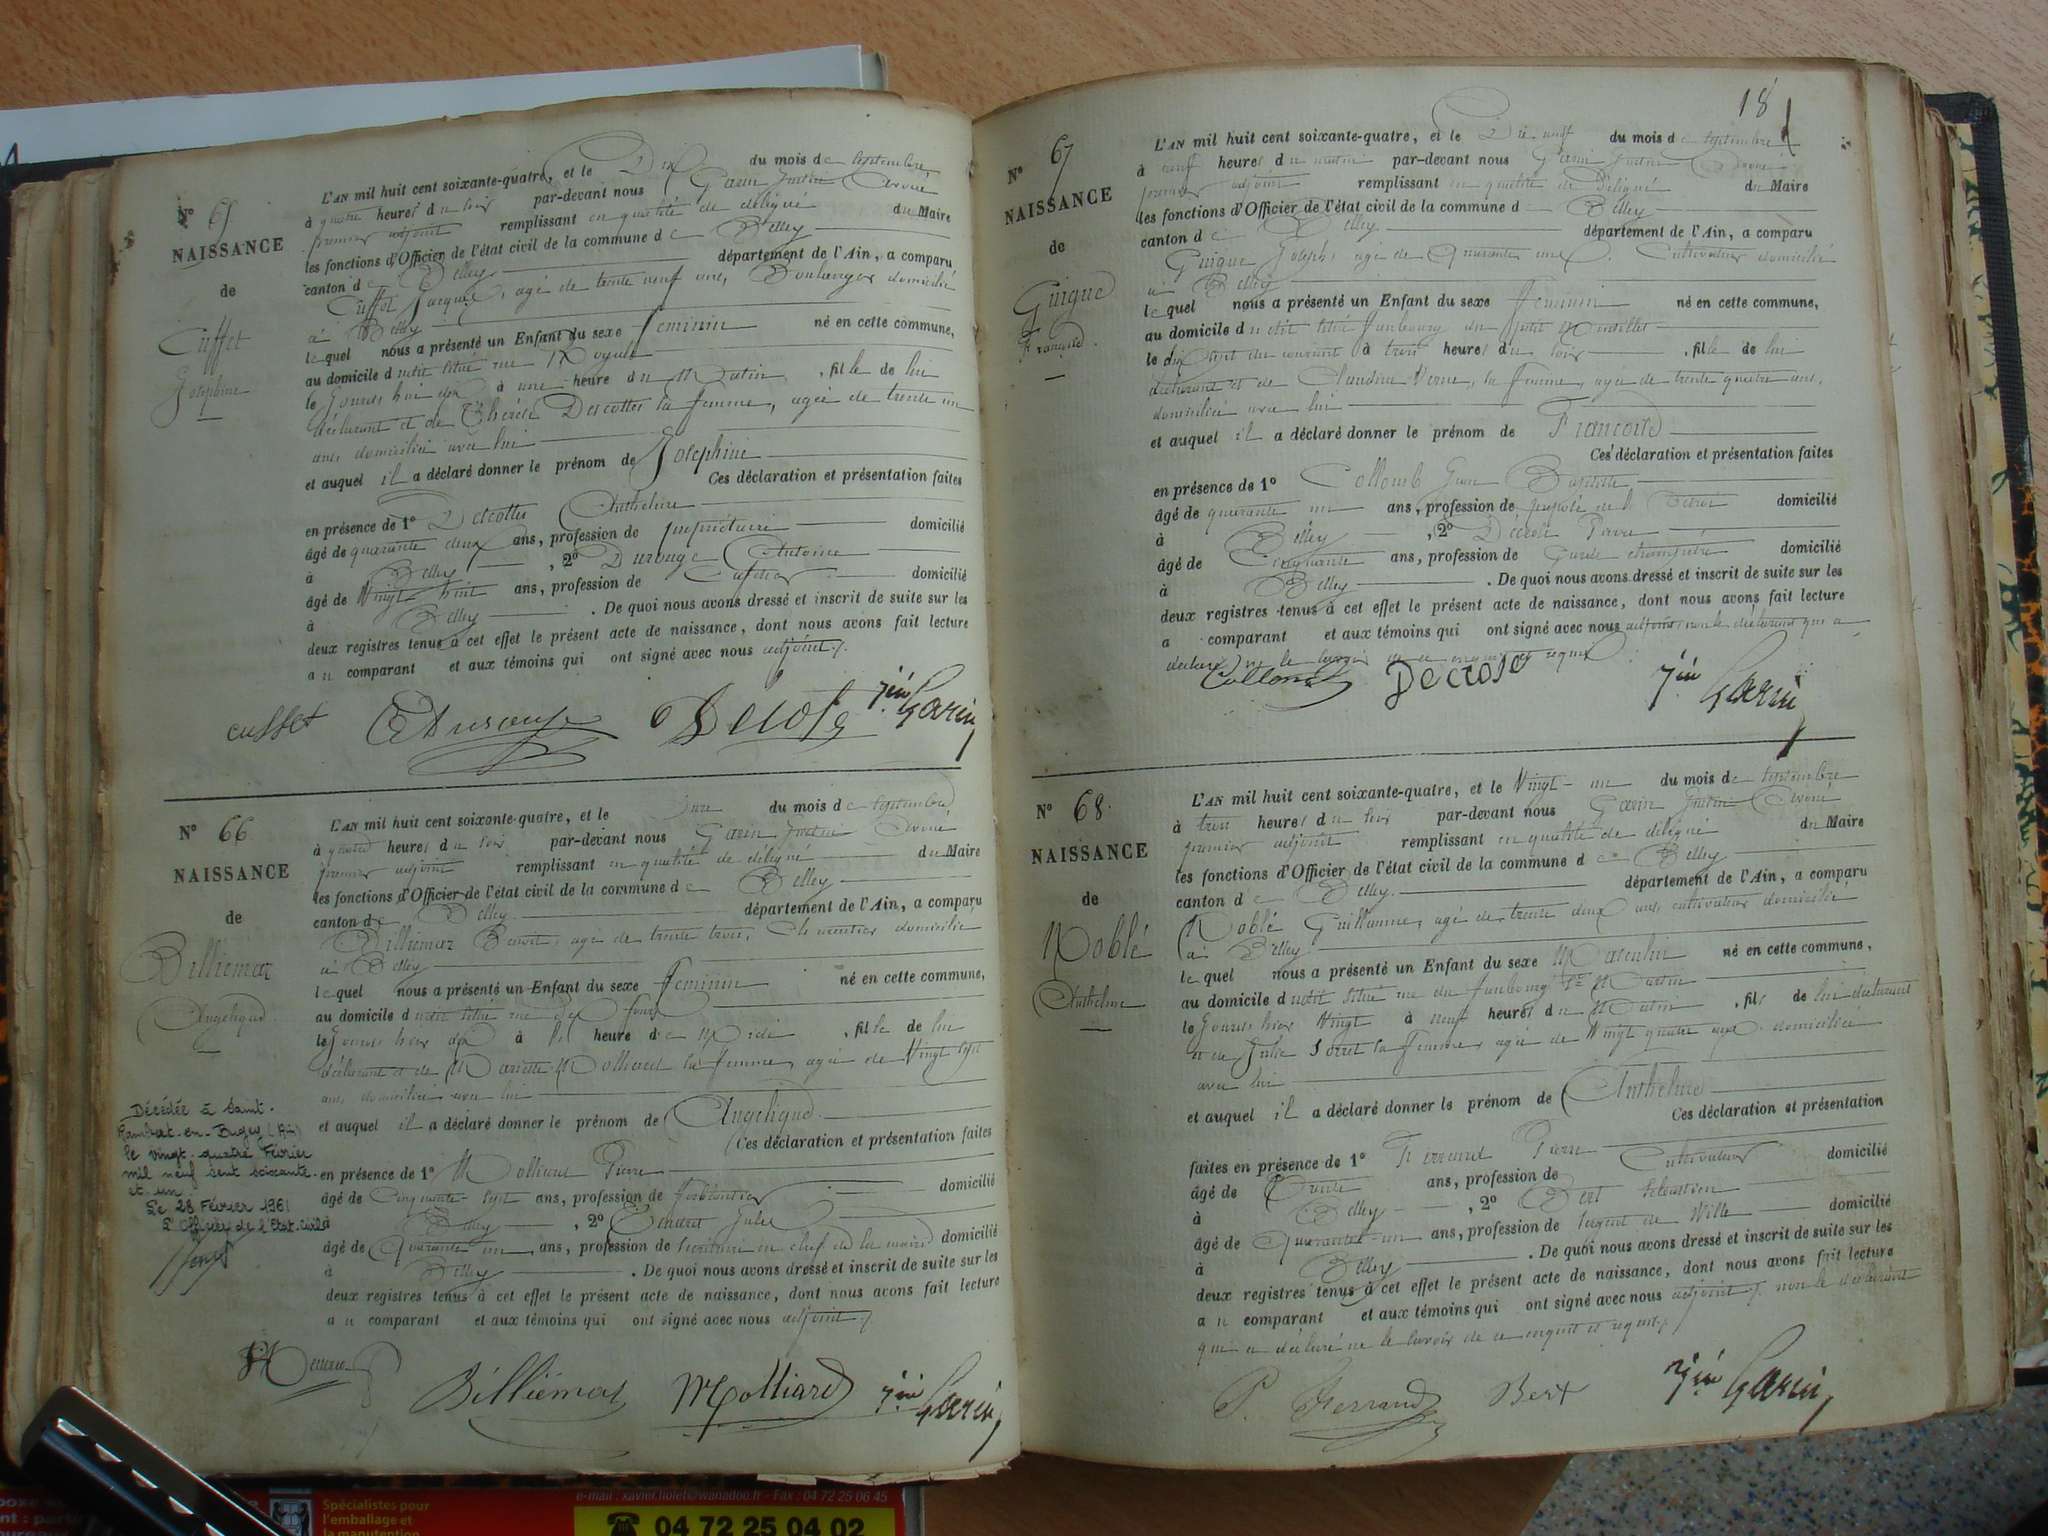 N° 65
NAISSANCE
de
Cuffet
Josephine
L'AN mil huit cent soixante-quatre, et le Dix du mois de septembre,
à quatre heures du soir par-devant nous Garin Justin Avoué
premier adjoint remplissant en qualité de délégué du Maire
les fonctions d'Officier de l'état civil de la commune de Belley
canton de Belley département de l'Ain, a comparu
Cuffet Jacques, agé de trente neuf ans, Boulanger domicilié
à Belley
lequel nous a présenté un Enfant du sexe feminin né en cette commune,
au domicile dudit situé rue Royale
le Jourd'hui dix à une heure du Matin, fille de lui
déclarant et de Thérèse Descottes sa femme, agée de trente un
ans, domiciliée avec lui
et auquel il a déclaré donner le prénom de Josephine
Ces déclaration et présentation faites
en présence de 1° Descottes Anthelme
âgé de quarante deux ans, profession de propriétaire domicilié
à Belley, 2° Antoine
âgé de Vingt huit ans, profession de domicilié
à Belley. De quoi nous avons dressé et inscrit de suite sur les
deux registres tenus à cet effet le présent acte de naissance, dont nous avons fait lecture
au comparant et aux témoins qui ont signé avec nous adjoint.
cuffet Garin
N° 66
NAISSANCE
de
Billiemaz
Angelique
L'AN mil huit cent soixante-quatre, et le Onze du mois de septembre
à quatre heures du soir par-devant nous Garin Justin Avoué
premier adjoint remplissant en qualité de délégué du Maire
les fonctions d'Officier de l'état civil de la commune de Belley
canton de Belley département de l'Ain, a comparu
Billiemaz Benoit, agé de trente trois, domicilié
à Belley
lequel nous a présenté un Enfant du sexe feminin né en cette commune,
au domicile dudit situé rue des fours
le Jours hier dix à l' heure de Midi, fille de lui
déclarant et de Mariette Molliard sa femme, agée de Vingt sept
ans, domiciliée avec lui
et auquel il a déclaré donner le prénom de Angelique
Ces déclaration et présentation faites
en présence de 1° Molliard Pierre
âgé de Cinquante-sept ans, profession de ferblantier domicilié
à Belley, 2° Jules
âgé de Quarante un ans, profession de secrétaire en chef de la mairie domicilié
à Belley. De quoi nous avons dressé et inscrit de suite sur les
deux registres tenus à cet effet le présent acte de naissance, dont nous avons fait lecture
au comparant et aux témoins qui ont signé avec nous adjoint.
Décédée à Saint-
Rambert-en-Bugey (Ain)
le vingt-quatre Février
mil neuf cent soixante-
et-un
Le 28 Février 1961
L'Officier de l'Etat-Civil
Billiémaz Molliard Garin
18
N° 67
NAISSANCE
de
Guigue
Françoise
L'AN mil huit cent soixante-quatre, et le Dix neuf du mois de septembre
à neuf heures du matin par-devant nous Garin Justin Avoué
premier adjoint remplissant en qualité de Délégué du Maire
les fonctions d'Officier de l'état civil de la commune de Belley
canton de Belley département de l'Ain, a comparu
Guigue Joseph, agé de Quarante ans, Cultivateur domicilié
à Belley
lequel nous a présenté un Enfant du sexe feminin né en cette commune,
au domicile dudit situé faubourg du petit
le dix sept du courant à trois heures du soir, fille de lui
déclarant et de Claudine Verne, sa femme, agée de trente quatre ans,
domiciliée avec lui
et auquel il a déclaré donner le prénom de Françoise
Ces déclaration et présentation faites
en présence de 1° Collomb Jean Baptiste
âgé de quarante un ans, profession de préposé de l' Octroi domicilié
à Belley, 2° Décrose Pierre
âgé de Cinquante ans, profession de Garde champêtre domicilié
à Belley. De quoi nous avons dressé et inscrit de suite sur les
deux registres tenus à cet effet le présent acte de naissance, dont nous avons fait lecture
a comparant et aux témoins qui ont signé avec nous adjoint, non le déclarant qui a
déclaré ne le savoir de ce enquis et requis
Collomb Decrose Garin
N° 68
NAISSANCE
de
Noblé
Anthelme
L'AN mil huit cent soixante-quatre, et le Vingt-un du mois de septembre
à trois heures du soir par-devant nous Garin Justin Avoué
premier adjoint remplissant en qualité de délégué du Maire
les fonctions d'Officier de l'état civil de la commune de Belley
canton de Belley département de l'Ain, a comparu
Noblé Guillaume, agé de trente deux ans, cultivateur domicilié
à Belley
lequel nous a présenté un Enfant du sexe Masculin né en cette commune,
au domicile dudit situé rue du faubourg St Martin
le Jours hier Vingt à neuf heures du Matin, fils de lui déclarant
et de Julie sa femme, agée de Vingt quatre ans domiciliée
avec lui
et auquel il a déclaré donner le prénom de Anthelme
Ces déclaration et présentation
faites en présence de 1° Ferrand Pierre
âgé de Trente ans, profession de Cultivateur domicilié
à Belley, 2° Bert Sebastien
âgé de Quarante-un ans, profession de Sergent de Ville domicilié
à Belley. De quoi nous avons dressé et inscrit de suite sur les
deux registres tenus à cet effet le présent acte de naissance, dont nous avons fait lecture
au comparant et aux témoins qui ont signé avec nous adjoint, non le déclarant
qui a déclaré ne le savoir de ce enquis et requis
P. Ferrand Bert Garin
e-mail : xavier.fiolet@wanadoo.fr - Fax : 04 72 25 06 45
Spécialistes pour
l'emballage et
la manutention
04 72 25 04 02